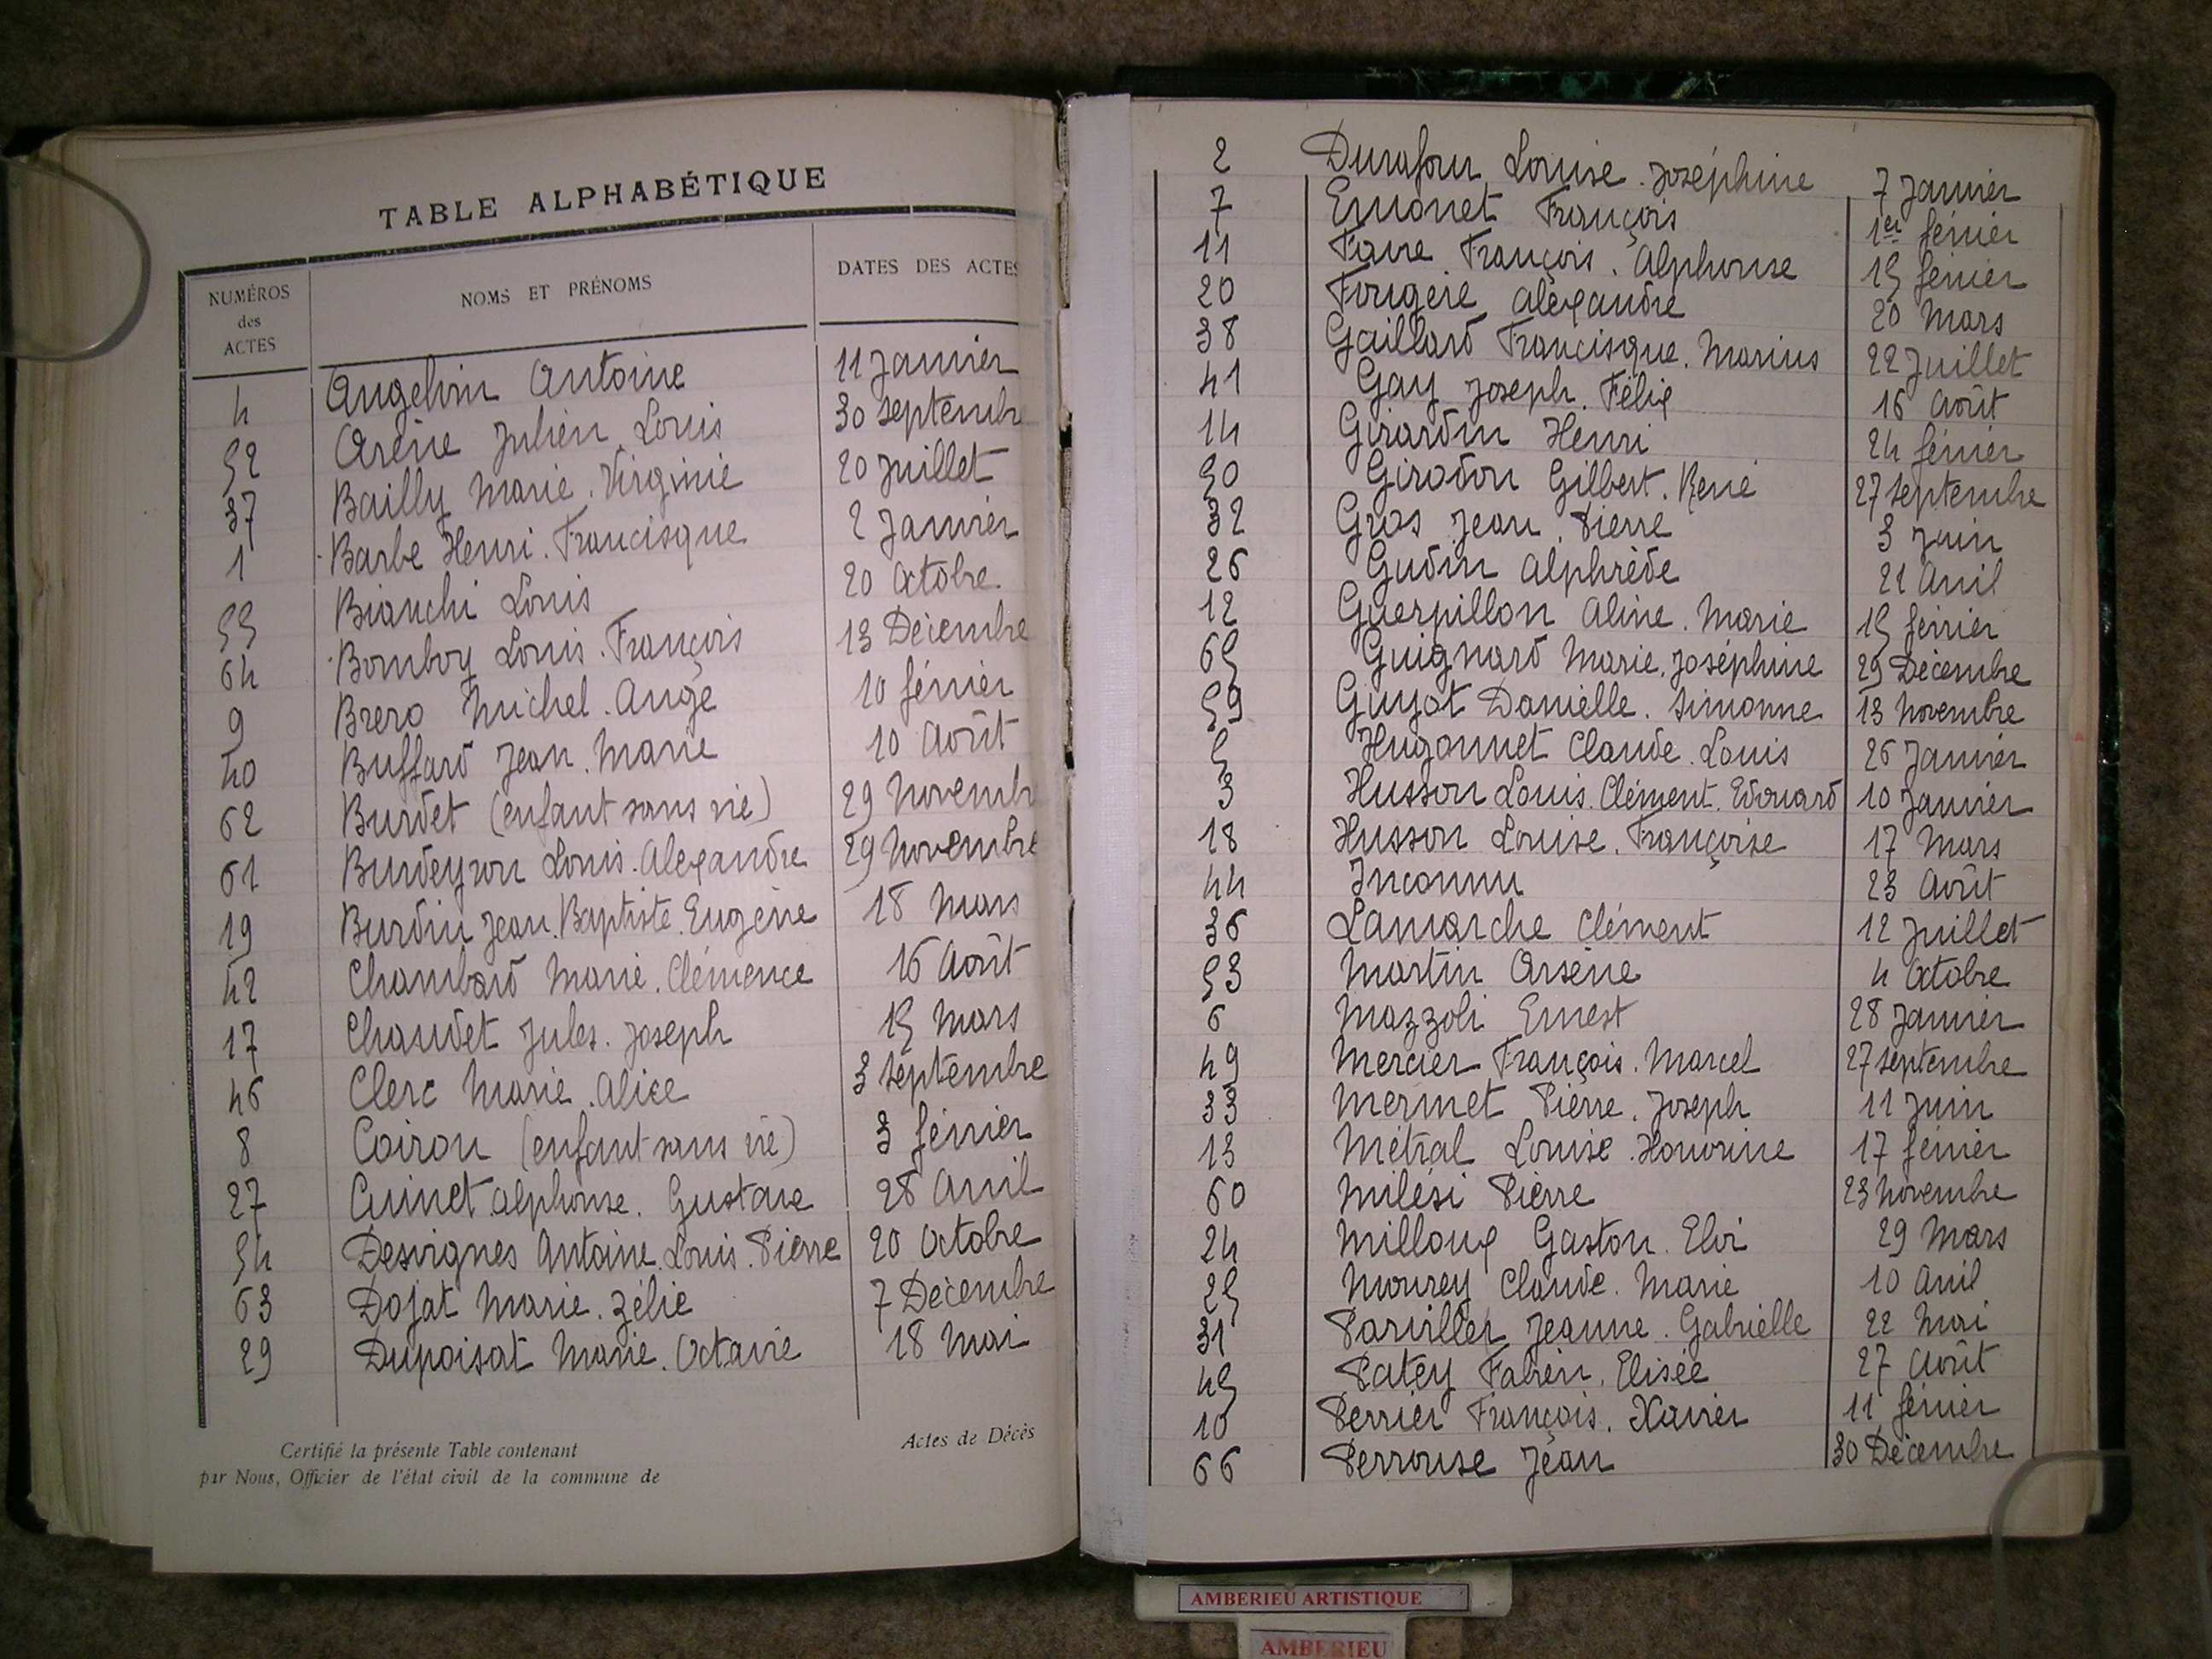 TABLE ALPHABÉTIQUE
NUMÉROS des ACTES NOMS ET PRÉNOMS DATES DES ACTES
4 Angelvin Antoine 11 Janvier
52 Arène Julien Louis 30 Septembre
37 Bailly Marie. Virginie 20 Juillet
1 Barbe Henri. Francisque 2 Janvier
55 Bianchi Louis 20 Octobre
64 Bomboy Louis. François 13 Décembre
9 Brero Michel. Ange 10 février
40 Buffard Jean. Marie 10 Août
62 Burdet (enfant sans vie) 29 Novembre
61 Burdeyron Louis. Alexandre 29 Novembre
19 Burdin Jean. Baptiste. Eugène 18 Mars
42 Chambard Marie. Clémence 16 Août
17 Chaudet Jules. Joseph 15 Mars
46 Clerc Marie. Alice 3 Septembre
8 Coiron (enfant sans vie) 3 février
27 Cuinet Alphonse. Gustave 28 Avril
54 Desvignes Antoine. Louis. Pierre 20 Octobre
63 Dojat Marie. Zélie 7 Décembre
29 Dupoisat Marie. Octavie 18 Mai
Certifié la présente Table contenant Actes de Décès
par Nous, Officier de l'état civil de la commune de
2 Durafour Louise. Joséphine 7 Janvier
7 Emonet François 1er février
11 Favre François. Alphonse 15 février
20 Fougère Alexandre 20 Mars
38 Gaillard Francisque. Marius 22 Juillet
41 Gay Joseph. Félix 16 Août
14 Girardin Henri 24 février
50 Girodon Gilbert. René 27 Septembre
32 Gros Jean. Pierre 3 Juin
26 Gudin Alphrède 21 Avril
12 Guerpillon Aline. Marie 15 février
65 Guignard Marie. Joséphine 29 Décembre
59 Guyot Danielle. Simonne 13 Novembre
5 Hugonnet Claude. Louis 26 Janvier
3 Husson Louis. Clément. Edouard 10 Janvier
18 Husson Louise. Françoise 17 Mars
44 Inconnu 23 Août
36 Lamarche Clément 12 Juillet
53 Martin Arsène 4 Octobre
6 Mazzoli Ernest 28 Janvier
49 Mercier François. Marcel 27 Septembre
33 Mermet Pierre. Joseph 11 Juin
13 Métral Louise. Honorine 17 février
60 Milési Pierre 23 Novembre
24 Milloux Gaston. Eloi 29 Mars
25 Mourey Claude. Marie 10 Avril
31 Parvillex Jeanne. Gabrielle 22 Mai
45 Patey Fabien. Elisée 27 Août
10 Perrier François. Xavier 11 février
66 Perrouse Jean 30 Décembre
AMBERIEU ARTISTIQUE
AMBERIEU